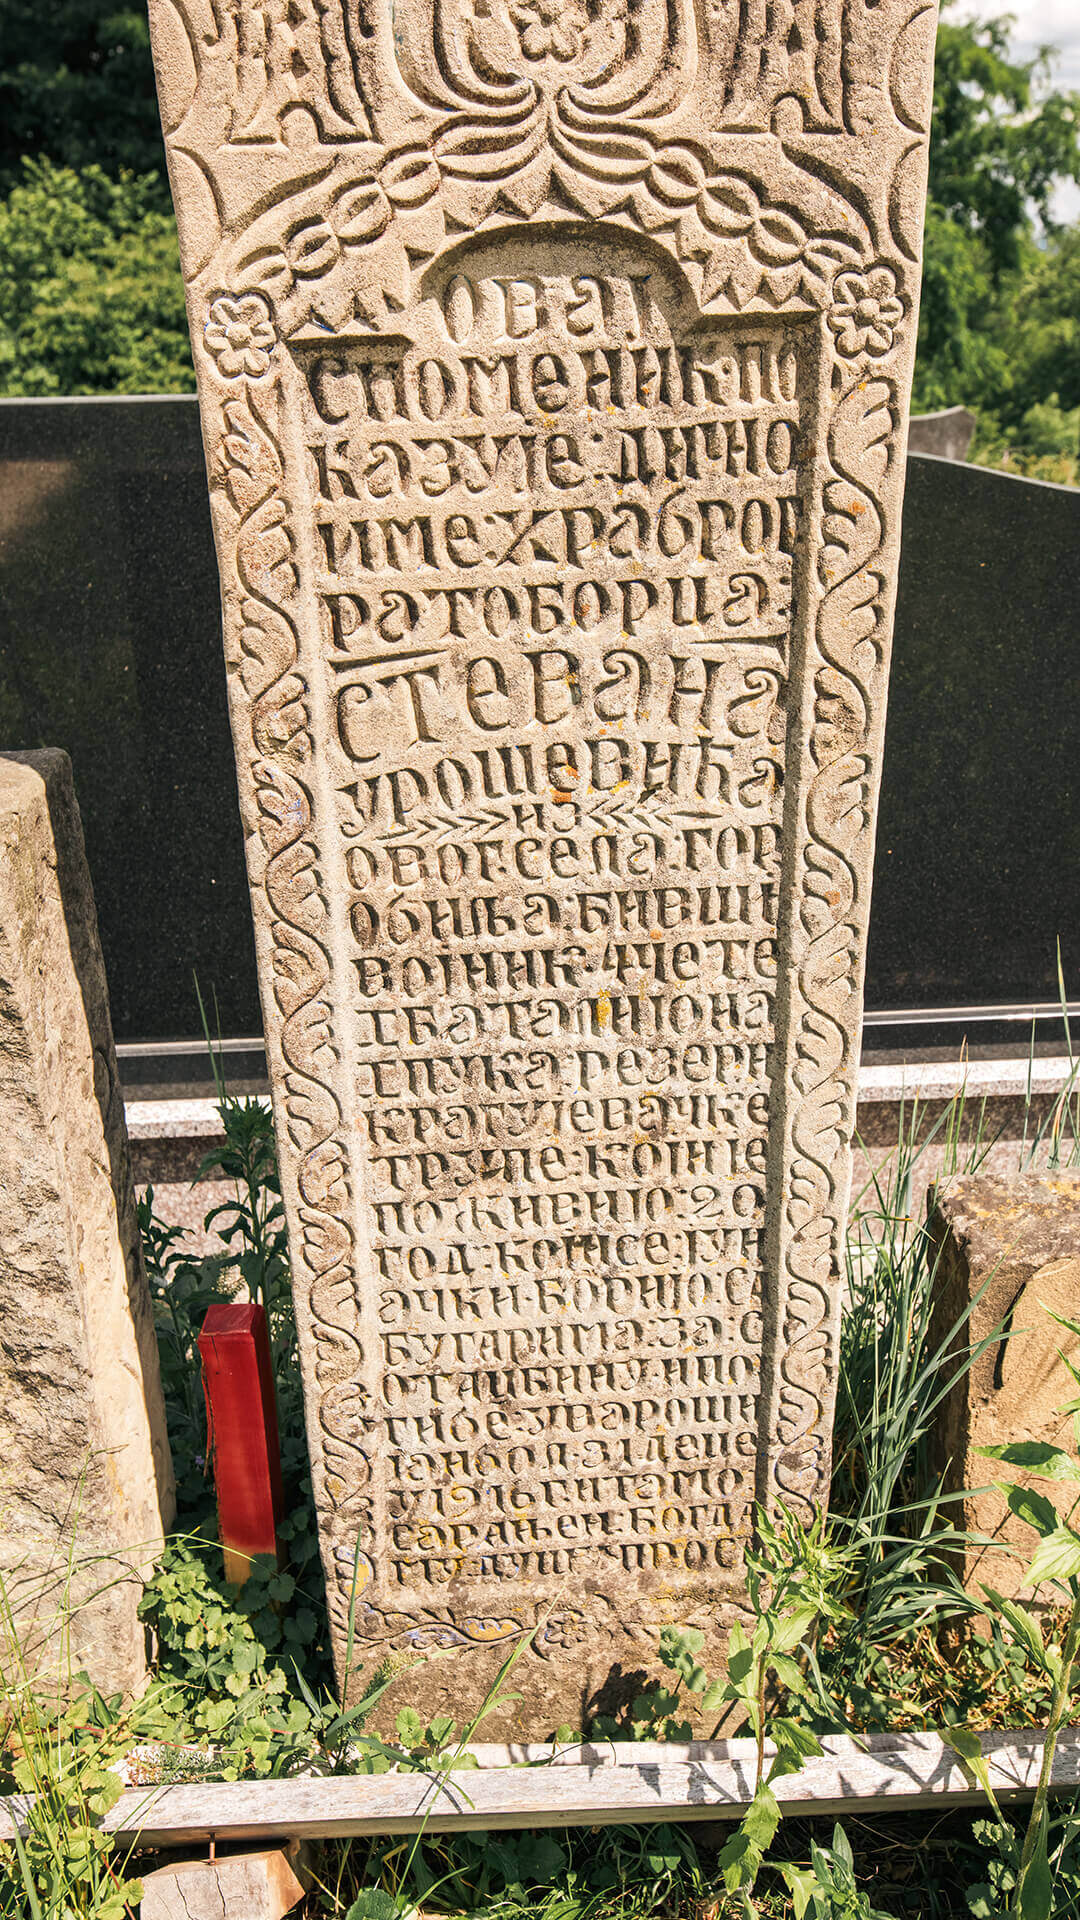 ОВАЈ
СПОМЕНИК·ПО
КАЗУЈЕ:ДИЧНО
ИМЕ:ХРАБРОГ
РАТОБОРЦА:
СТЕВАНА
УРОШЕВИЋА
ИЗ
ОВОГ:СЕЛА:ГОР
ОБИЉА:БИВШИ
ВОЈНИК·4ЧЕТЕ
IБАТАЛИЮНА
IПУКА:РЕЗЕРН
КРАГУЈЕВАЧКЕ
ТРУПЕ:КОЈИЈЕ
ПОЖИВИЮ:20
ГОД:КОЈИСЕ:ЈУН
АЧКИ·БОРИЮ:СА
БУГАРИМА:ЗА:С
ОТАЏБИНУ·ИПО
ГИБЕ:УВАРОШИ
ЈАНБОЛ·31ДЕЦЕ
У1916Г·ИТАМО
САРАЊЕН:БОГДА
МУДУШЕ·ПРОС